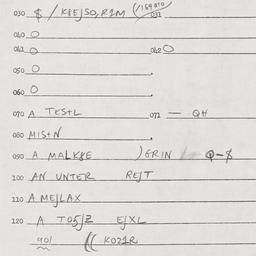 030 $ / K8EJSO,R2M (/169 070 031
040 O
041 O 042 O
050 O
060 O
070 A TESTL 071 — QH
080 MISTN
090 A MALKKE ) GRIN Q-$
100 AN UNTER REJT
110 A MEJLAX
120 A TO5JZ EJXL
901 (( K021R